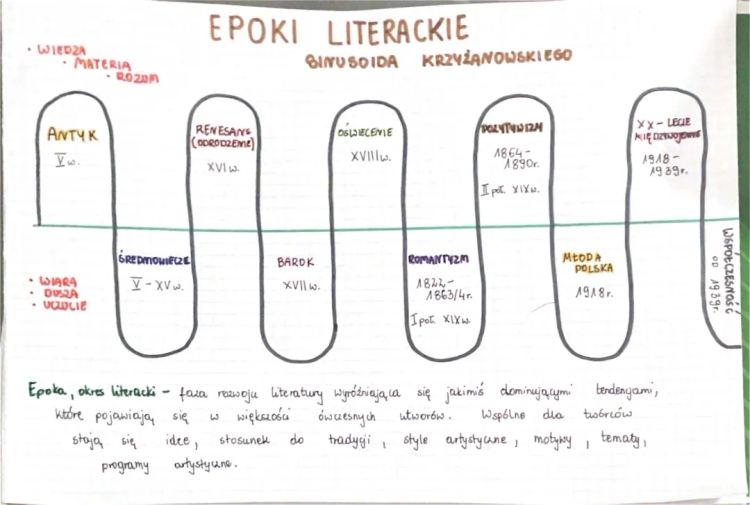 EPOKI LITERACKIE
SINUSOIDA KRZYŻANOWSKIEGO
• WIEDZA
• MATERIA
• ROZUM
ANTYK
V w.
RENESANS
(ODRODZENIE)
XVI w.
OŚWIECENIE
XVIII w.
POZYTYWIZM
1864-
1890r.
II poł. XIX w.
XX-LECIE
MIĘDZYWOJENNE
1918-
1939r.
• WIARA
• DUSZA
• UCZUCIE
ŚREDNIOWIECZE
V - XV w.
BAROK
XVII w.
ROMANTYZM
1822-
1863/4r.
I poł. XIX w.
MŁODA
POLSKA
1918r.
WSPÓŁCZESNOŚĆ
OD 1939r.
Epoka, okres literacki - faza rozwoju literatury wyróżniająca się jakimiś dominującymi tendencjami,
które pojawiają się w większości ówczesnych utworów. Wspólne dla twórców
stają się idee, stosunek do tradycji, style artystyczne, motywy, tematy,
programy artystyczne.